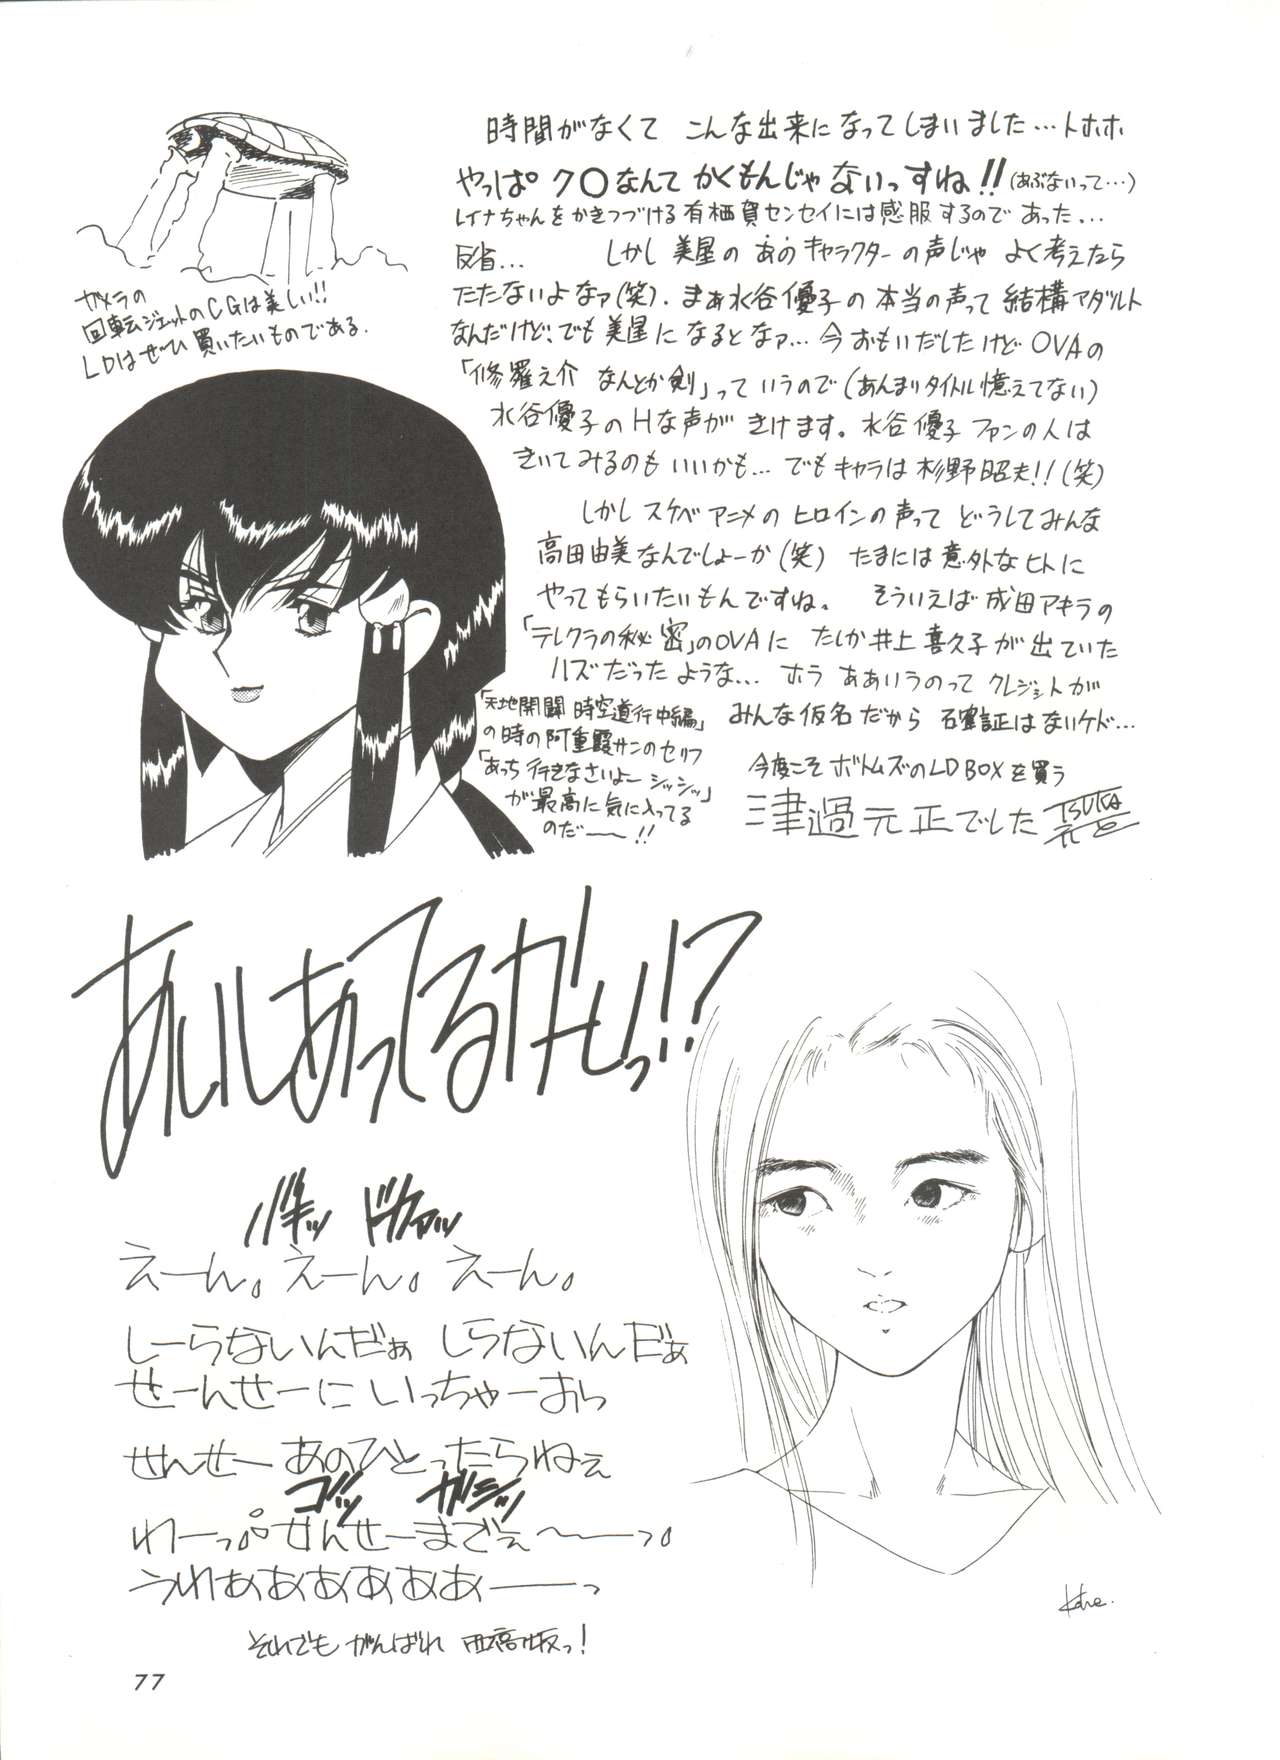 時間がなくて こんな出来になってしまいました…トホホ
やっぱ ク〇なんて かくもんじゃないっすね!! (あぶないって…)
レイナちゃんをかきつづける有栖賀センセイには感服するのであった…
反省… しかし美星のあのキャラクターの声じゃ よく考えたら
たたないよなァ(笑). まぁ水谷優子の本当の声って結構アダルト
なんだけど、でも美星になるとなァ… 今おもいだしたけどOVAの
「修羅之介 なんとか剣」っていうので(あんまりタイトル憶えてない)
水谷優子のHな声がきけます。水谷優子ファンの人は
きいてみるのもいいかも… でもキャラは杉野昭夫!!(笑)
しかしスケベアニメのヒロインの声って どうしてみんな
高田由美なんでしょーか(笑) たまには意外なヒトに
やってもらいたいもんですね。 そういえば成田アキラの
「テレクラの秘密」のOVAに たしか井上喜久子が出ていた
ハズだったような… ホラ ああいうのって クレジットが
みんな仮名だから 確証はないケド…
今度こそ ボトムズのLD BOXを買う
津過元正でした
ガメラの
回転ジェットのCGは美しい!!
LDはぜひ買いたいものである.
「天地開闢 時空道行 中編」
の時の阿重霞サンのセリフ
「あっち行きなさいよー シッシッ」
が最高に気に入ってる
のだ――!!
バキッ ドカァッ
えーん。えーん。えーん。
しーらないんだぁ しらないんだぁ
せーんせーに いっちゃーおら
せんせー あのひとったらねぇ
ゴッ ガシッ
わーっ。せんせーまでぇ〜――っ。
うわぁああああああ――っ
それでも がんばれ
77